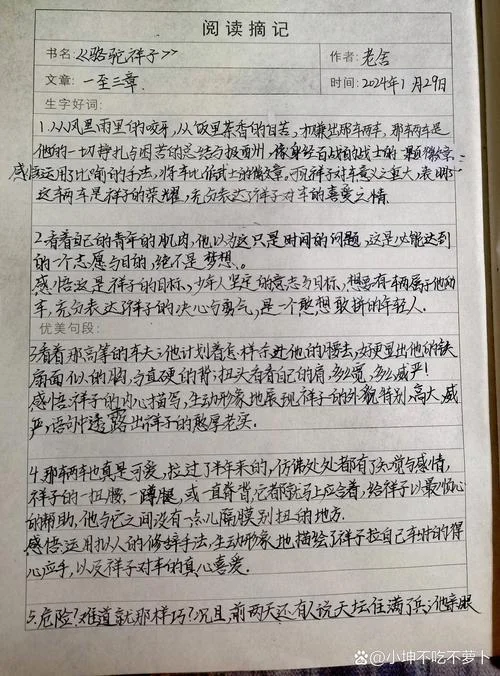 阅读摘记
书名:《骆驼祥子》 作者:老舍
文章:一至三章 时间:2024年1月29日
生字好词:
1.从风里雨里的咬牙,从饭里茶里的自苦,才赚出那车。那车是
他的一切挣扎与困苦的总结果与报酬,像身经百战的战士的一颗徽章.
感悟运用了比喻的手法,将车比作武士的徽章。可见祥子对车意义重大,表明
这车是祥子的荣耀,充分表达了祥子对车的喜爱之情.
2.看着自己的青年的肌肉,他以为这只是时间的问题,这是必能达到
的一个志愿与目的,绝不是梦想.。
感悟这是祥子的目标,少年人坚定的意志与目标,想要有车属于他的
车,充分表达了祥子的决心与勇气,是一个敢想敢拼的年轻人.
优美句段:
3.看着那高等的车夫,他计划着怎样杀进他的腰去,好更显出他的铁
扇面似的胸,与直硬的背;扭头看看自己的肩,多么宽,多么威严!
感悟:祥子的内心描写,生动形象地展现祥子的外貌特别,高大,威
严,语句中透露出祥子的憨厚老实.
4.那车也真是可爱,拉过了半年来的,仿佛处处都有了知觉与感情,
祥子的一扭腰,一蹲腿,或一直脊背,它都就马上应合着,给祥子以最顺心
的帮助,他与它之间没有一点儿隔膜别扭的地方.
感悟:运用拟人的修辞手法,生动形象地描绘了祥子拉自己车时的得
心应手,以及祥子对车的真心喜爱.
5.危险?难道就那样巧?况且,前两天还有人说天坛住满了兵;他亲眼
@小坤不吃不萝卜